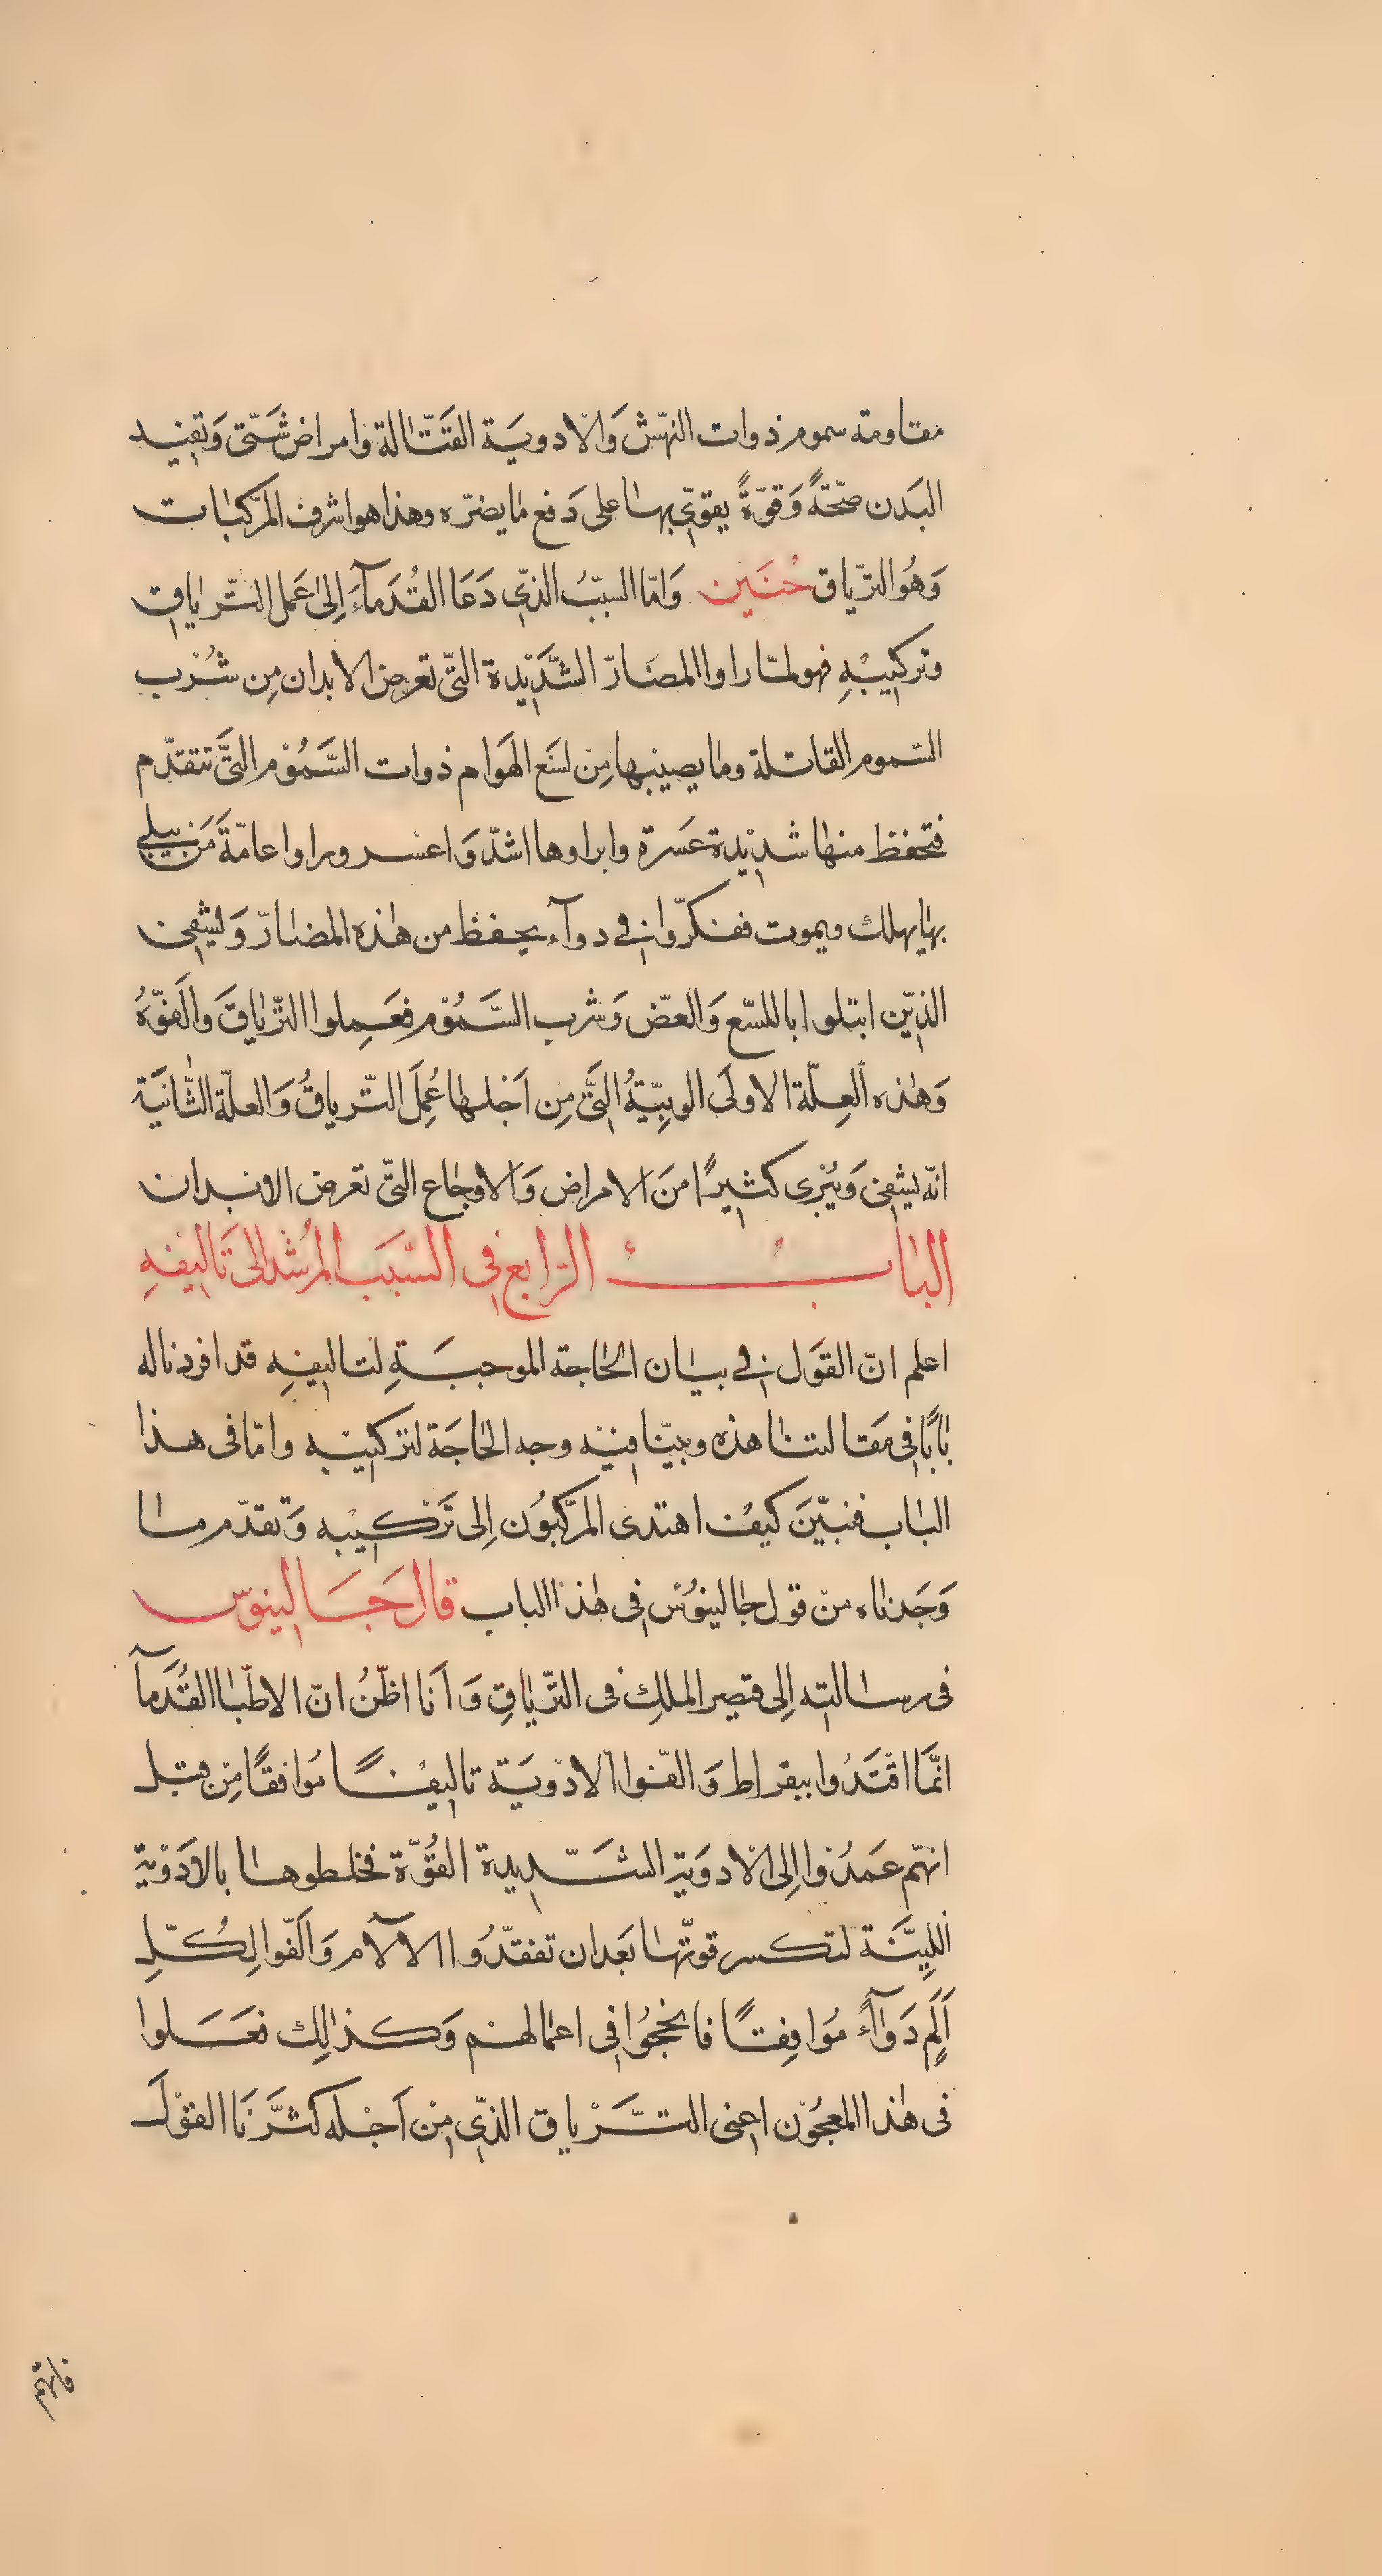 مقاومة سموم ذوات النهّش وَالادويَة القَتّالة وامراض شَتّى وَتفيد
البَدن صحّتةً وَقوّةً يقوّى بها على دَفع ما يضرّه وهذا هو اشرف المركّبات
وَهُو الترّياق حُنَين وَامّا السبّبُ الذّى دَعَا القُدَمآءَ اِلى عَمل التّرياق
وتركيبْهِ فهو لمّا راوا المضَارّ الشَّدَيْدة التّى تعرض الابدان مِن شُرْب
السّموم القاتلة وما يصيبها مِنْ لسَع الهَوام ذوات السَّمُوْم التَّى تتقدّم
فتحفظ منها شديْدة عَسَرة وابراوها اشدّ وَاعسر وراوا عامّةَ مَن يبلى
بها يهلك ويموت ففكرّوا فى دوآء يحفظ من هذه المضارّ وَليشفى
الذيّن ابتلوا باللسّع وَالعضّ وَشرب السَّمُوْم فعَمِلوا الترّياقَ وَالَفوّهُ
وَهذه العِلّة الاولَى الوبيّةُ التَّى مِن اَجْلها عُمِلَ التّرياقُ وَالعلّة الثّانيَة
انّه ليشفى وَيُبْرى كثيرًا منَ الامراض وَالاوجاع التّى تعرض الابدان
البابُ الرّابع فى السّبَب المرُشْد الى تَاليفهِ
اعلم انّ القوَل فى بيان الحاجة الموجبَةِ لتاليفهِ قد افردنا له
بابًا فى مَقالتنا هذه وبيّنا فيْه وجه الحاجَة لتركيبْه وامّا فى هذا
الباب فنبيّنَ كيفَ اهتدى المركّبوُن اِلى تَرْكيبْه وَتقدّم ما
وَجَدناه منْ قول جالينوُس فى هذا الباب قال جَالينوس
فى رسالته اِلى قيصر الملكِ فى الترّياقِ وَاَنا اظنّ انّ الاطبّا القُدَمآ
انمَّا اقْتَدُوا ببقراط وَالفّوا الادْويَة تاليفًا مُوافقًا مِنْ قبل
انهّم عَمدُوا اِلى الادوَية الشَّديدة القُوّة فخلطوها بالادَوْية
اللِيّنَة لتكسر قوّتها بَعد ان تفقّدُوا الآلام وَالَفّوا لِكُلِّ
اَلَمٍ دَوَآءً مُوافِقًا فانجحُوا فى اعمالهْم وَكذلِك فعَلوا
فى هذا المعجُوْن اعنى التّرْياق الذّى مِنْ اَجْله كَثّرَنَا القوْلَ